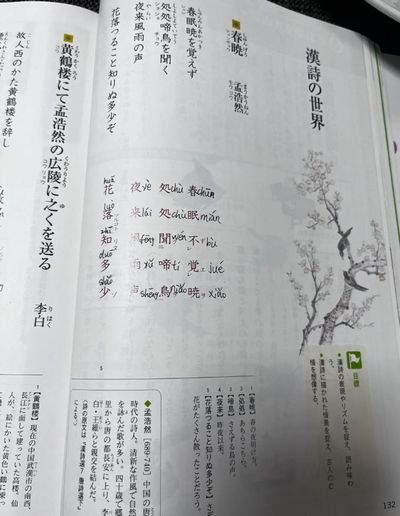 漢詩の世界
春暁
孟浩然
春眠暁を覚えず
処処啼鳥を聞く
夜来風雨の声
花落つること知りぬ多少ぞ
春眠不覚暁
処処聞啼鳥
夜来風雨声
花落知多少
目標
漢詩の表現やリズムを捉え、読み味わう。
漢詩に描かれた情景を捉え、古人の心情を想像する。
1【春暁】春の夜明け方。
2【処処】あちらこちら。
3【啼鳥】さえずる鳥の声。
4【夜来】昨夜以来。
5【花落つること知りぬ多少ぞ】
花がたくさん散ったことだろう。
◆孟浩然［689-740］中国の唐
時代の詩人。清新な作風で自然
を詠んだ歌が多い。四十歳で郷
里から唐の都長安に上り、李
白・王維らと親交を結んだ。
132
黄鶴楼にて孟浩然の広陵に之くを送る
李白
故人西のかた黄鶴楼を辞し
1【黄鶴楼】現在の中国武漢市の南西、
長江に面して建っていた高楼。仙
人が、絵にかいた黄色い鶴に乗っ